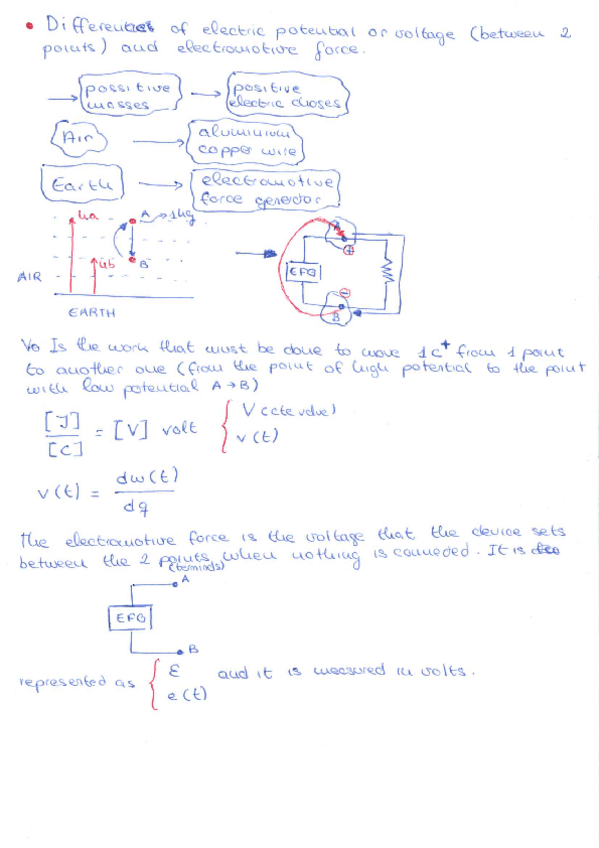 • Differences of electric potential or voltage (between 2
points) and electromotive force.
possitive masses → positive electric chases
Air → aluminium copper wire
Earth → electromotive force generator
ua A → 1kg
ub B
AIR
EARTH
A
+
EFG
−
B
Vo Is the work that must be done to move 1c⁺ from 1 point
to another one (from the point of high potential to the point
with low potential A → B)
[J]/[C] = [V] volt { V (cte value)
v(t)
v(t) = dw(t)/dq
The electromotive force is the voltage that the device sets
between the 2 points when nothing is connected. It is
(terminals)
A
EFG
B
represented as { ε and it is measured in volts.
e(t)